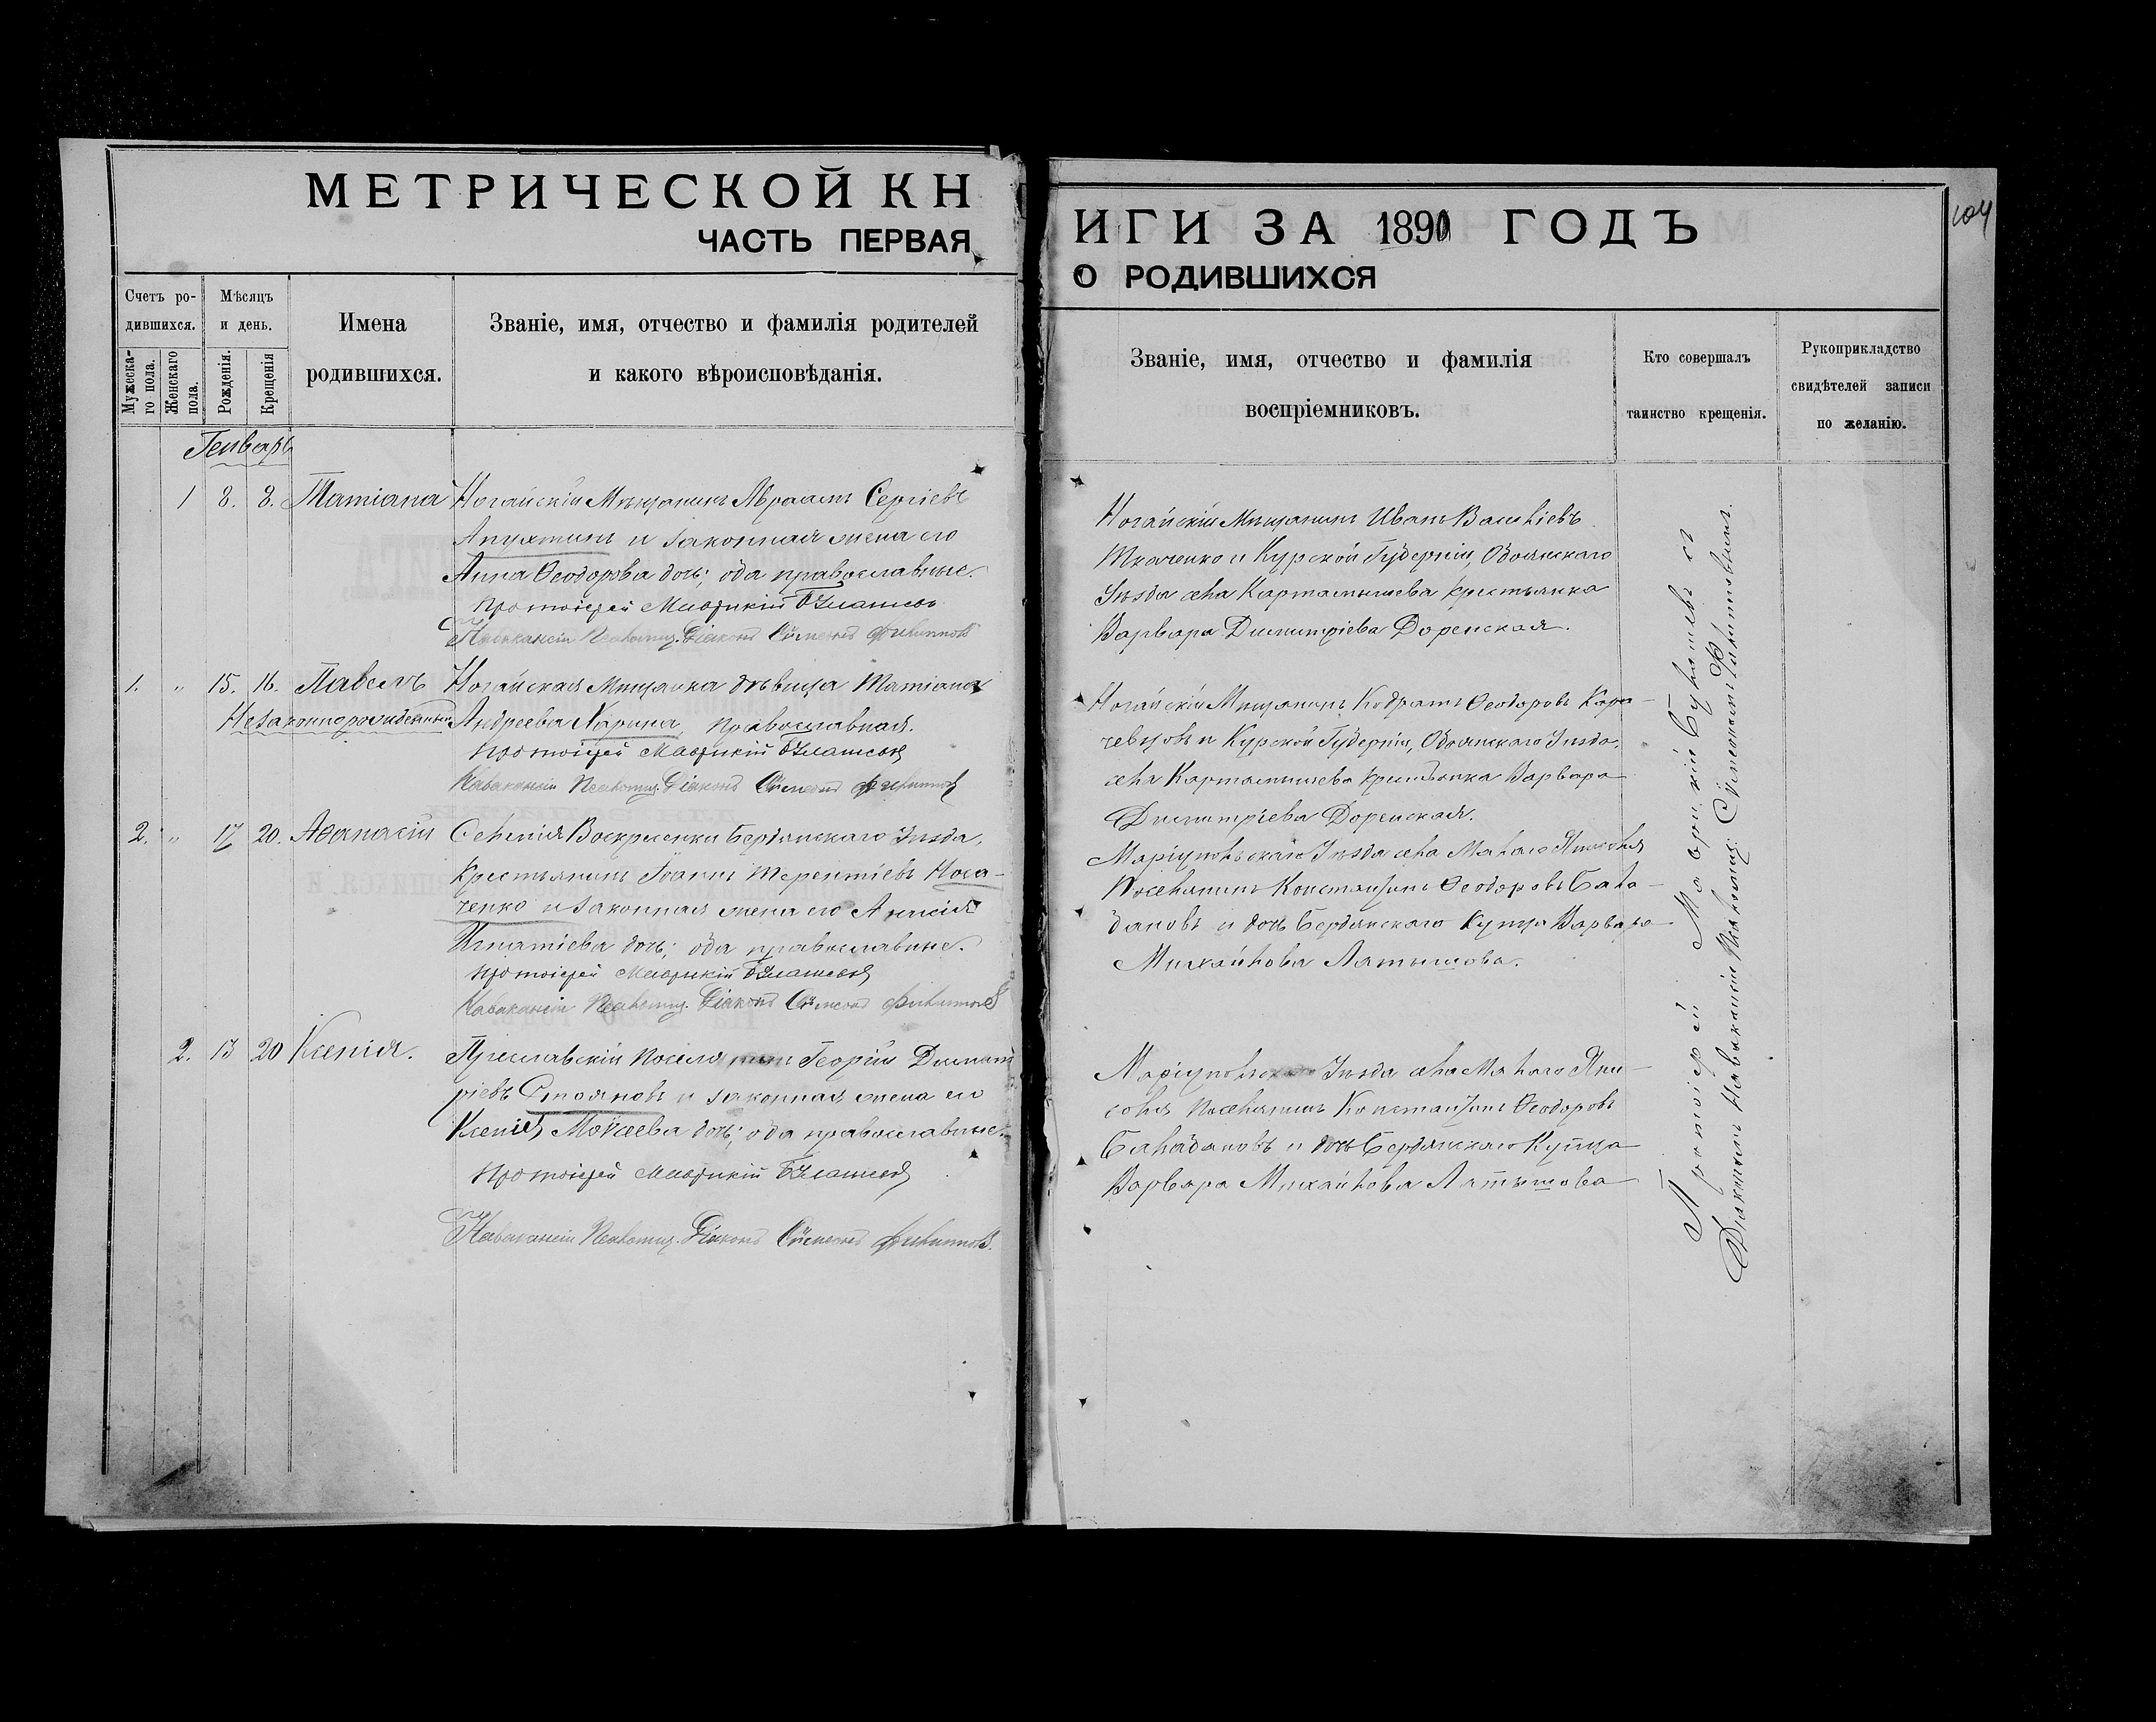 МЕТРИЧЕСКОЙ КН
ЧАСТЬ ПЕРВАЯ
Счетъ ро-
дившихся.
Мужеска-
го пола.
Женскаго
пола.
Мѣсяцъ
и день.
Рожденія.
Крещенія
Имена
родившихся.
Званіе, имя, отчество и фамилія родителей
и какого вѣроисповѣданія.
Генварь
1 8. 8. Татіана Ногайскій Мѣщанинъ Авраамъ Сергіевъ
Апухтинъ и законная жена его
Анна Ѳеодорова дочь; оба православные.
Протоіерей Маврикій
Псаломщ. Діаконъ Сѵмеонъ Филипповъ
1. " 15. 16. Павелъ Ногайская Мѣщанка дѣвица Татіана
Незаконнорожденный Андреева Ларина, православная.
Протоіерей Маврикій
Псаломщ. Діаконъ Сѵмеонъ Филипповъ
2. " 17 20. Аѳанасій Селенія Воскресенки Бердянскаго Уѣзда,
Крестьянинъ Іоаннъ Терентіевъ Носа-
ченко и законная жена его
Игнатіева дочь; оба православные.
Протоіерей Маврикій
Псаломщ. Діаконъ Сѵмеонъ Филипповъ
2. 13 20 Ксенія. Преславскій Георгій Димит
ріевъ Стояновъ и законная жена его
Ксенія Мокіева дочь; оба православные.
Протоіерей Маврикій
Псаломщ. Діаконъ Сѵмеонъ Филипповъ.
ИГИ ЗА 1890 ГОДЪ
104
О РОДИВШИХСЯ
Званіе, имя, отчество и фамилія
воспріемниковъ.
Кто совершалъ
таинство крещенія.
Рукоприкладство
свидѣтелей записи
по желанію.
Ногайскій Мѣщанинъ Иванъ Василіевъ
Ткаченко и Курской Губерніи, Обоянскаго
Уѣзда села Картамышева крестьянка
Варвара Димитріева Доренская.
Ногайскій Мѣщанинъ Кодратъ Ѳеодоровъ Кара-
чевцовъ и Курской Губерніи, Обоянскаго Уѣзда,
села Картамышева крестьянка Варвара
Димитріева Доренская.
Маріупольскаго Уѣзда села Малаго Янисоля
Поселянинъ Константинъ Ѳеодоровъ Бала-
бановъ и дочь Бердянскаго Купца Варвара
Михайлова Латышова.
Маріупольскаго Уѣзда села Малаго Яни-
соля Поселянинъ Константинъ Ѳеодоровъ
Балабановъ и дочь Бердянскаго Купца
Варвара Михайлова Латышова
Протоіерей Маврикій съ
Діакономъ на вакансіи Псаломщ. Сѵмеономъ Филипповымъ.